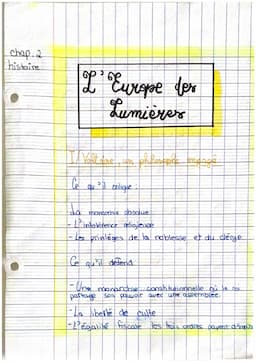 chap. 2
histoire
L'Europe des
Lumières
I/ Voltaire, un philosophe engagé
Ce qu'il critique :
La monarchie absolue
- L'intolérance religieuse
- Les privilèges de la noblesse et du clergé
Ce qu'il défend
- Une monarchie constitutionnelle où le roi
partage son pouvoir avec une assemblée.
- La liberté de culte
- L'égalité fiscale les trois ordres payent